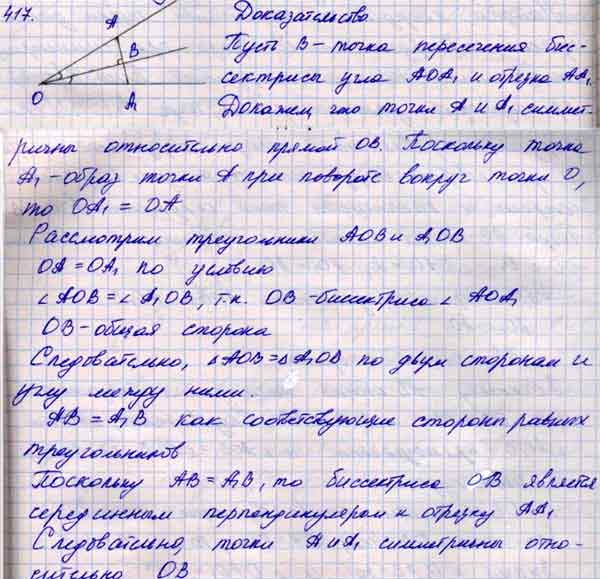 417.
Доказательство
A
B
O
A₁
Пусть B - точка пересечения бис-
сектрисы угла AOA₁ и отрезка AA₁.
Докажем, что точки A и A₁ симмет-
ричны относительно прямой OB. Поскольку точка
A₁ - образ точки A при повороте вокруг точки O,
то OA₁ = OA
Рассмотрим треугольники AOB и A₁OB
OA = OA₁ по условию
∠AOB = ∠A₁OB, т.к. OB - биссектриса ∠AOA₁
OB - общая сторона
Следовательно, △AOB = △A₁OB по двум сторонам и
углу между ними.
AB = A₁B как соответствующие стороны равных
треугольников
Поскольку AB = A₁B, то биссектриса OB является
серединным перпендикуляром к отрезку AA₁
Следовательно, точки A и A₁ симметричны отно-
сительно OB